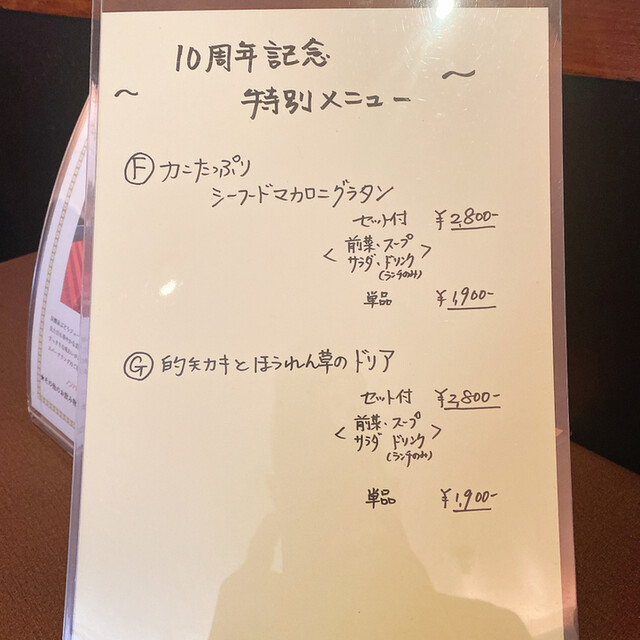 10周年記念
～ 特別メニュー ～
Ⓕ カニたっぷり
シーフードマカロニグラタン
セット付 ¥2,800-
<前菜・スープ
サラダ・ドリンク>
(ランチのみ)
単品 ¥1,900-
Ⓖ 的矢カキとほうれん草のドリア
セット付 ¥2,800-
<前菜・スープ
サラダ ドリンク>
(ランチのみ)
単品 ¥1,900-